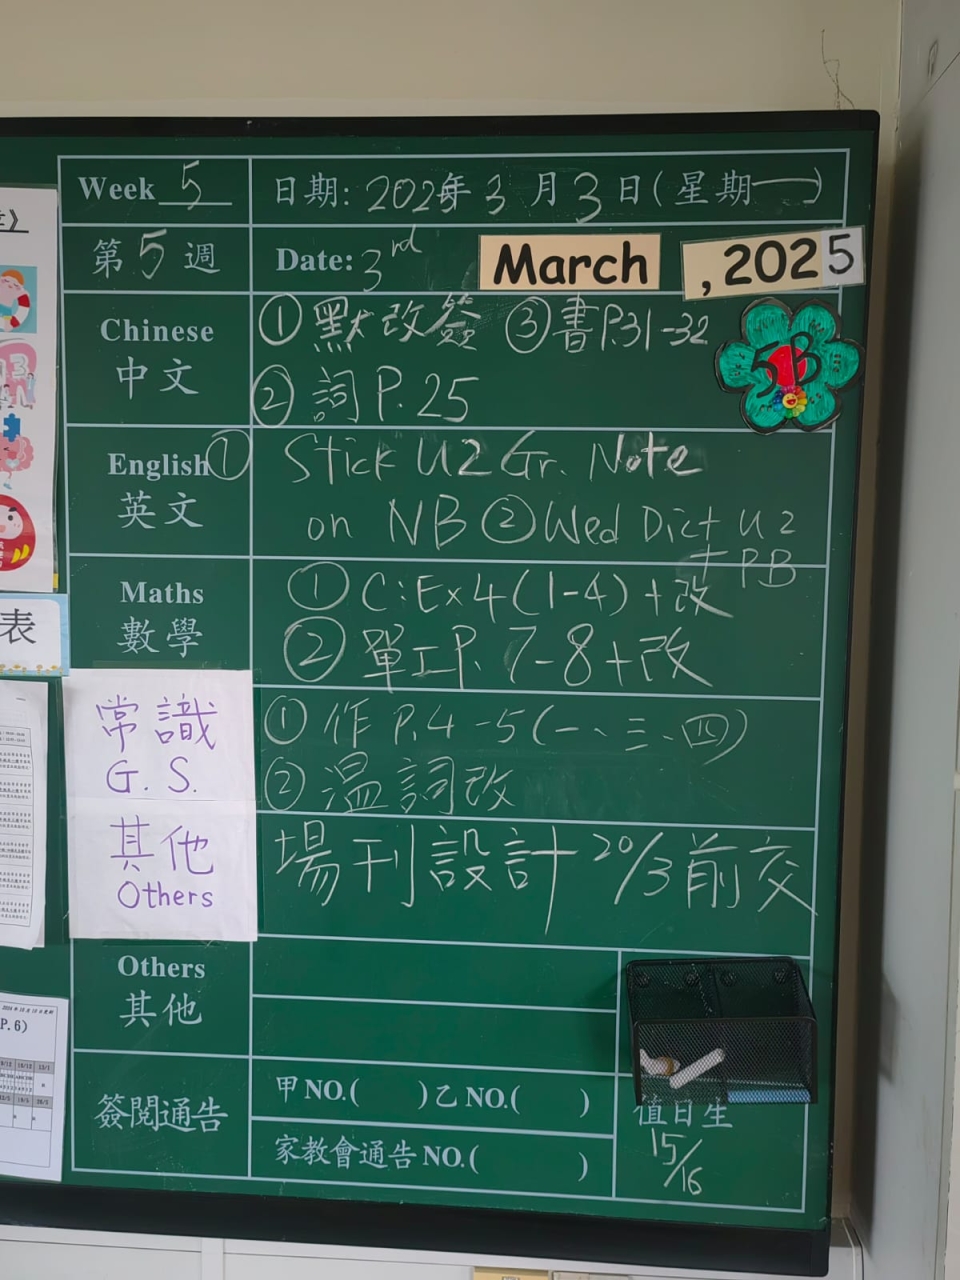 Week 5
日期: 2025年3月3日(星期一)
第5週
Date: 3rd March, 2025
Chinese
中文
① 默改簽 ③ 書P.31-32
② 詞P.25
5B
English
英文
① Stick U2 Gr. Note
on NB ② Wed Dict U2
+ PB
Maths
數學
① C:Ex4(1-4)+改
② 單工P.7-8+改
常識
G.S.
① 作P.4-5(一、三、四)
② 溫詞改
其他
Others
場刊設計 20/3前交
Others
其他
簽閱通告
甲NO.( )乙NO.( )
家教會通告NO.( )
值日生
15/16
表
P.6)